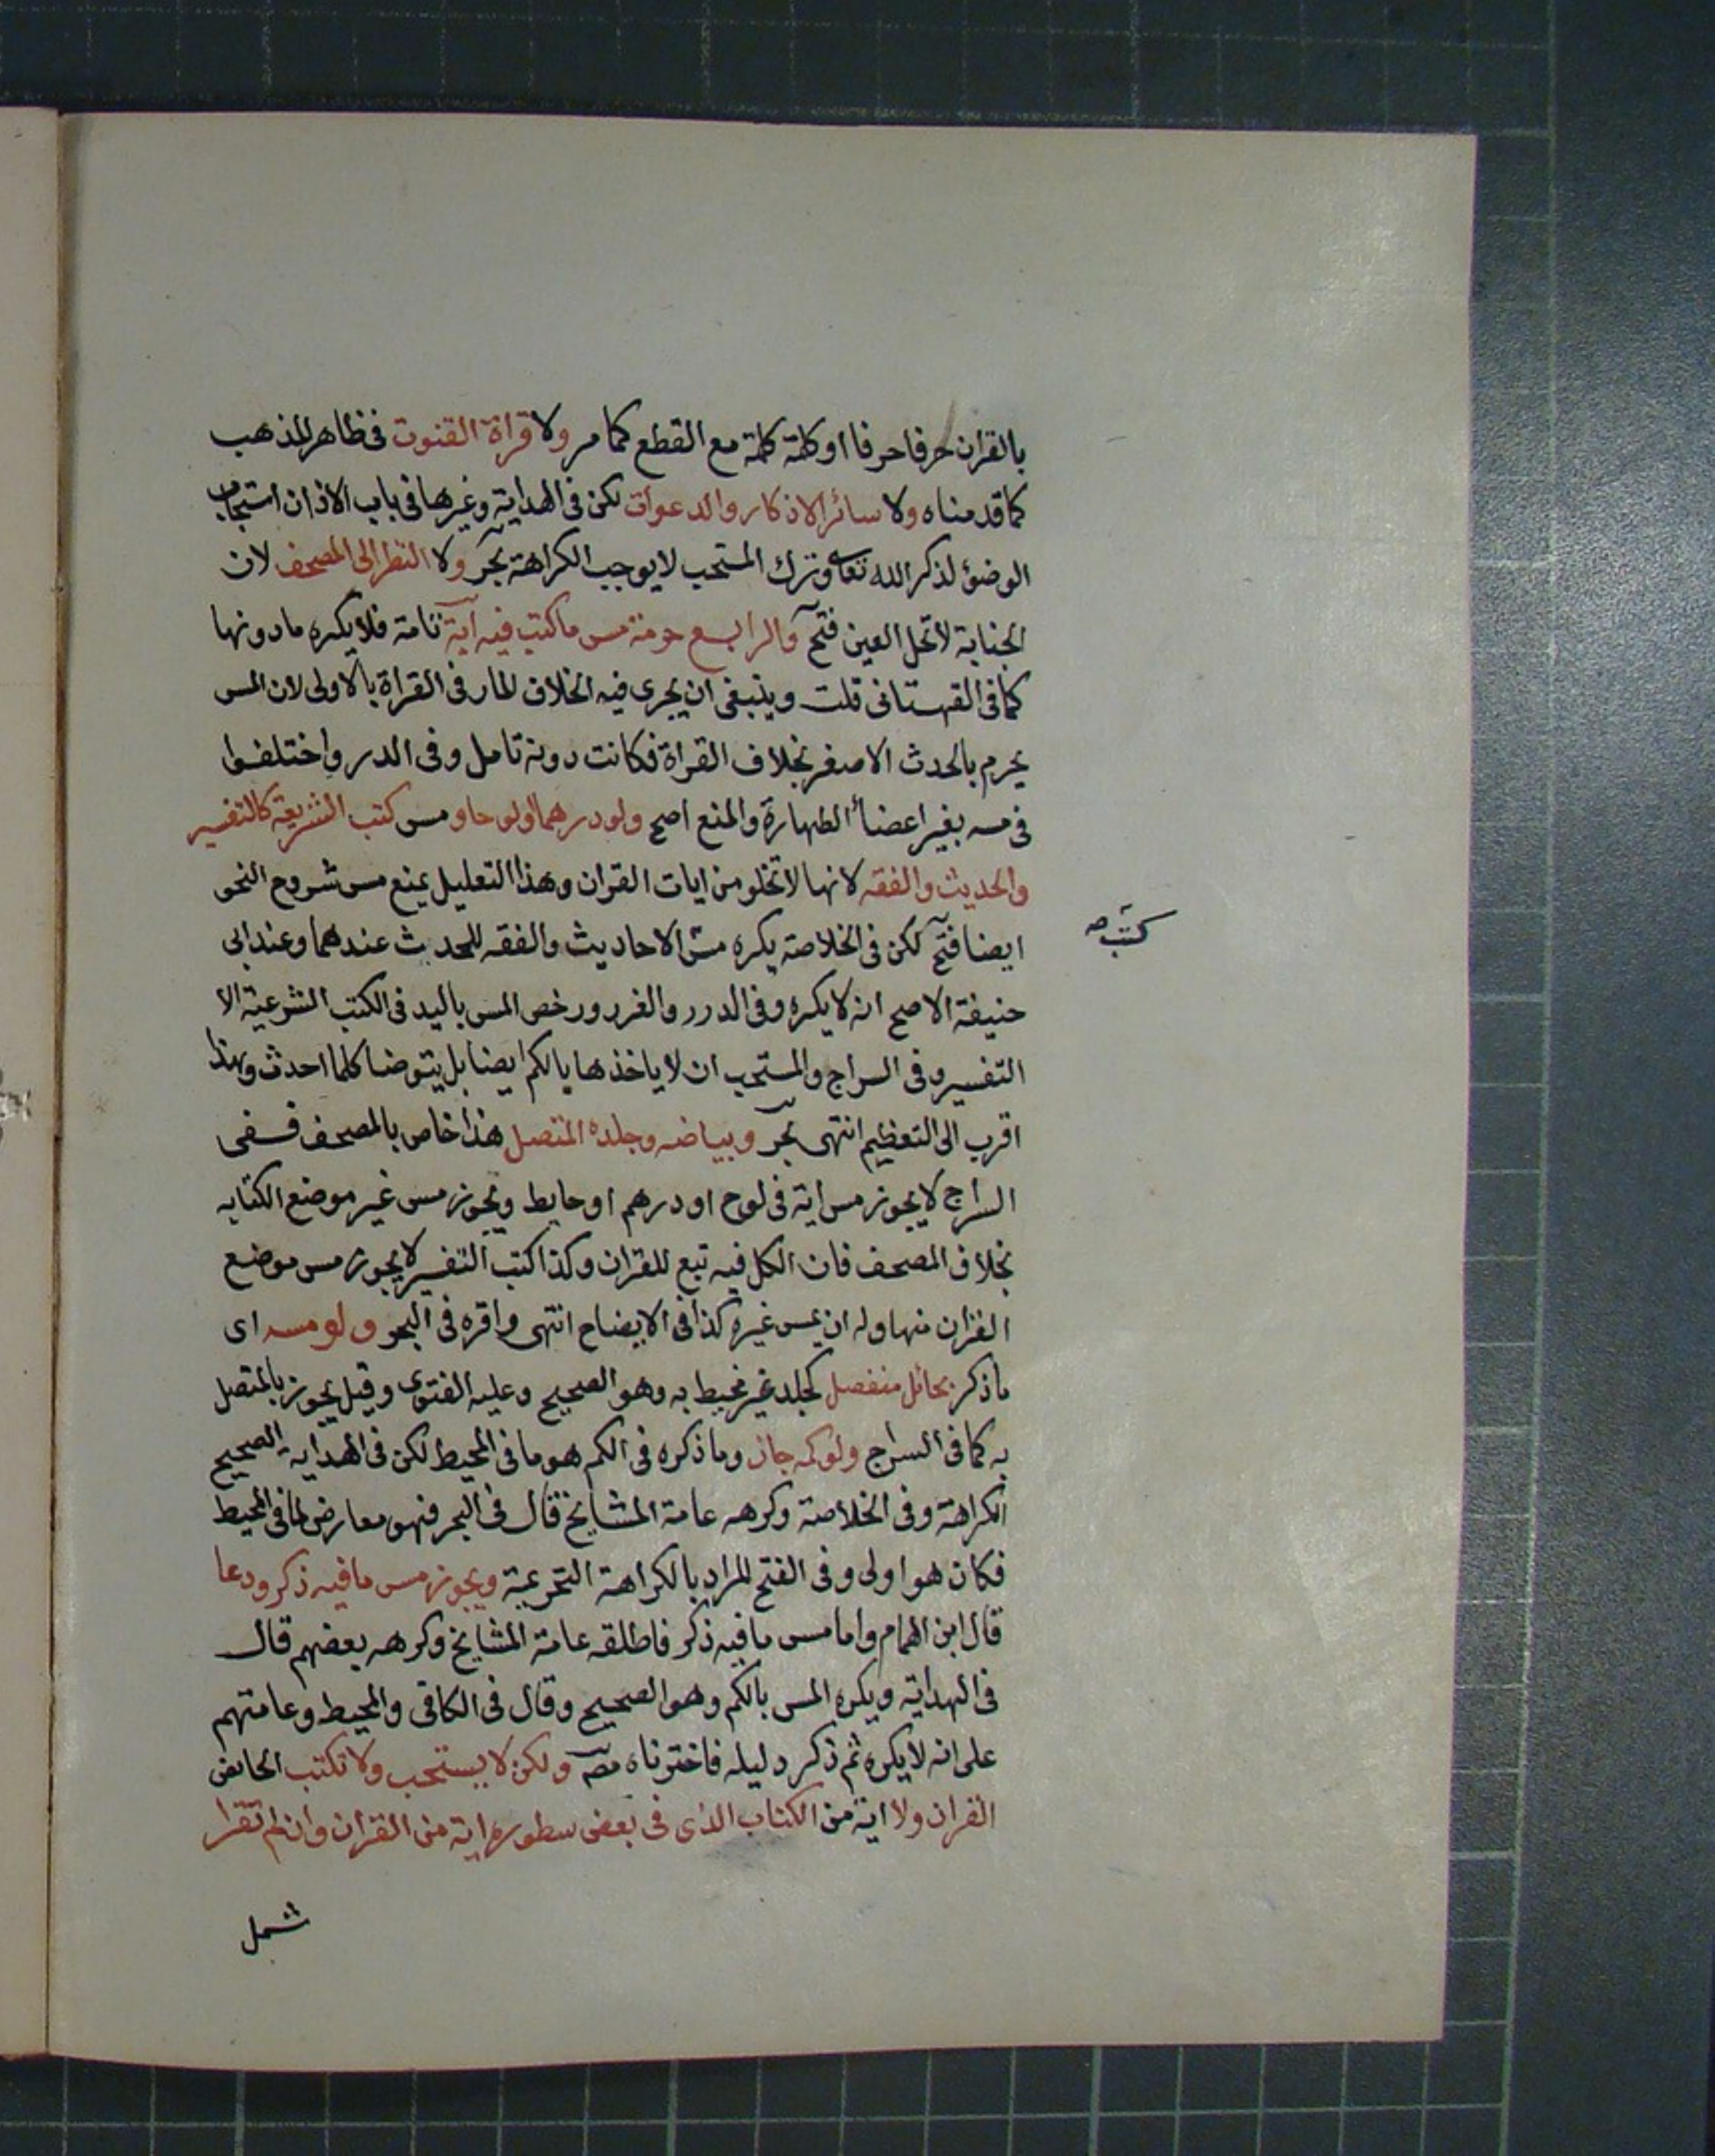 بالقران حرفا حرفا او كلمة كلمة مع القطع كما مر ولا قراة القنوت فى ظاهر المذهب
كما قدمناه ولا سائر الاذكار والدعوات لكن فى الهداية وغيرها فى باب الاذان استحباب
الوضوء لذكر الله تعالى وترك المستحب لا يوجب الكراهة بحر ولا النظر الى المصحف لان
الجنابة لا تحل العين فتح والرابع حرمة مس ما كتب فيه آية تامة فلا يكره ما دونها
كما فى القهستانى قلت وينبغى ان يجرى فيه الخلاف المار فى القراة بالاولى لان المس
يحرم بالحدث الاصغر بخلاف القراة فكانت دونه تامل وفى الدر واختلفوا
فى مسه بغير اعضاء الطهارة والمنع اصح ولو درهما او لوحا ومس كتب الشريعة كالتفسير
والحديث والفقه لانها لا تخلو من ايات القران وهذا التعليل يمنع مس شروح النحو
ايضا فتح لكن فى الخلاصة يكره مس الاحاديث والفقه للمحدث عندهما وعند ابى
كتب صح
حنيفة الاصح انه لا يكره وفى الدرر والغرر ورخص المس باليد فى الكتب الشرعية الا
التفسير وفى السراج والمستحب ان لا ياخذها بالكم ايضا بل يتوضا كلما احدث وهذا
اقرب الى التعظيم انتهى بحر وبياضه وجلده المتصل هذا خاص بالمصحف ففى
السراج لا يجوز مس اية فى لوح او درهم او حايط ويجوز مس غير موضع الكتابه
بخلاف المصحف فان الكل فيه تبع للقران وكذا كتب التفسير لا يجوز مس موضع
القران منها وله ان يمس غيره كذا فى الايضاح انتهى واقره فى البحر ولو مسه اى
ما ذكر بحائل منفصل كجلد غير مخيط به وهو الصحيح وعليه الفتوى وقيل يجوز بالمتصل
به كما فى السراج ولو كمه جاز وما ذكره فى الكم هو ما فى المحيط لكن فى الهدايه الصحيح
الكراهة وفى الخلاصة وكرهه عامة المشايخ قال فى البحر فهو معارض لما فى المحيط
فكان هو اولى وفى الفتح المراد بالكراهة التحريمية ويجوز مس ما فيه ذكر ودعا
قال ابن الهمام واما مس ما فيه ذكر فاطلقه عامة المشايخ وكرهه بعضهم قال
فى الهداية ويكره المس بالكم وهو الصحيح وقال فى الكافى والمحيط وعامتهم
على انه لا يكره ثم ذكر دليله فاخترناه مصـ ولكن لا يستحب ولا تكتب الحائض
القران ولا اية من الكتاب الذى فى بعض سطوره اية من القران وان لم تقرا
شمل